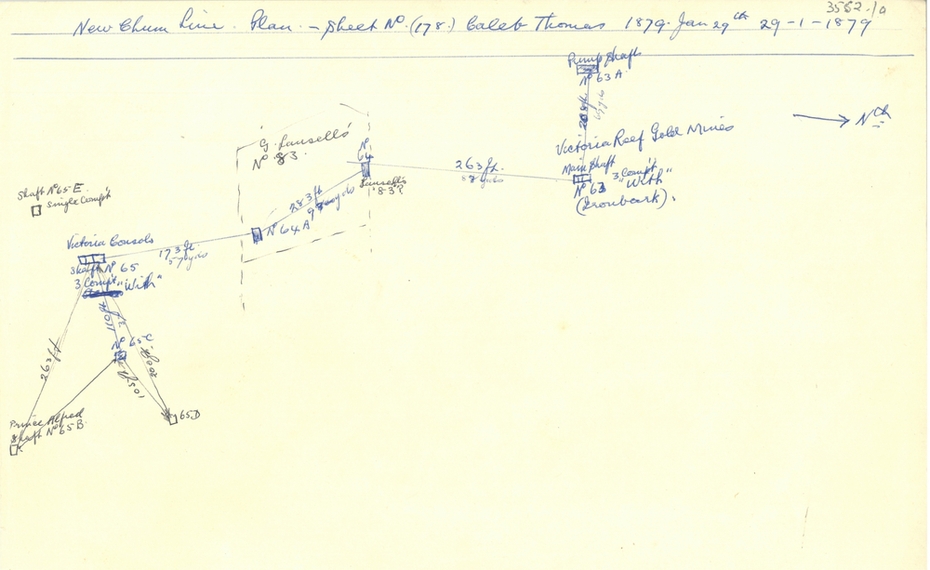 3562.10
New Chum Line. Plan - Sheet No. (178.) Caleb Thomas 1879. Jan 29th 29-1-1879
Pump Shaft
No 63A
208 ft
Nth
Victoria Reef Gold Mines
Main Shaft
3 Compt.
No 63 "With"
(Ironbark).
263 ft.
G. Lansell's
No 83.
No
64
Lansell's
"83"?
283 ft
No 64A
173 ft
57 yds
Shaft No 65 E.
Single Compt
Victoria Consols
Shaft No 65
3 Compt "With"
No 65C
263 ft
200 ft
105 ft
65D
Prince Alfred
Shaft No 65B